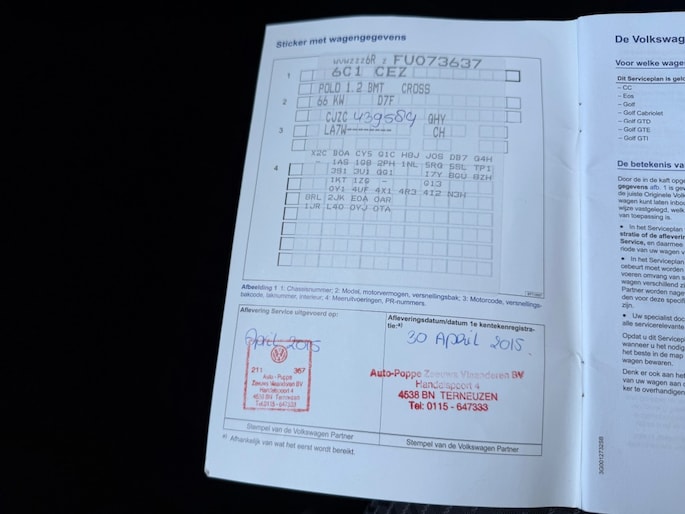 Sticker met wagengegevens
WVWZZZ6R Z FU073637
1 6C1 CEZ
POLO 1.2 BMT CROSS
2 66 KW D7F
CJZC 439584 QHY
3 LA7W-------- CH
X2C B0A CYS Q1C H8J J0S D87 G4H
4 - 1AS 1QB 2PH 1NL 5RG 5SL TP1
3B1 3U1 GG1 I7Y 8GU 8ZH
1KT 1Z6 - G13
0Y1 4UF 4X1 4R3 4I2 N3H
BRL 2JK E0A 0AR
1JR L40 0YJ 0TA
Afbeelding 1 1: Chassisnummer; 2: Model, motorvermogen, versnellingsbak; 3: Motorcode, versnellings-
bakcode, laknummer, interieur; 4: Meeruitvoeringen, PR-nummers.
Aflevering Service uitgevoerd op:
April 2015
211 367
Auto - Poppe
Zeeuws Vlaanderen BV
Handelspoort 4
4538 BN TERNEUZEN
Tel:0115 - 647333
Stempel van de Volkswagen Partner
Afleveringsdatum/datum 1e kentekenregistra-
tie:*)
30 April 2015.
Auto-Poppe Zeeuws Vlaanderen BV
Handelspoort 4
4538 BN TERNEUZEN
Tel: 0115 - 647333
Stempel van de Volkswagen Partner
*) Afhankelijk van wat het eerst wordt bereikt.
De Volkswag
Voor welke wage
Dit Serviceplan is geld
– CC
– Eos
– Golf
– Golf Cabriolet
– Golf GTD
– Golf GTE
– Golf GTI
De betekenis va
Door de in de kaft opg
gegevens afb. 1 is gev
de juiste Originele Volk
wagen kunt laten inbou
wijze vastgelegd, welk
van toepassing is.
● In het Serviceplan
stratie of de afleverin
Service, en daarmee
riode van uw wagen v
● In het Serviceplan
gebeurt moet worden
voeren omvang van s
wagen verschillend zi
Partner worden nage
den voor deze specif
zijn.
● Uw specialist doc
alle servicerelevante
Opdat u dit Servicep
wanneer u het nodig
het beste in de map
wagen bewaren.
Denk er ook aan het
van uw wagen aan d
ker te overhandigen